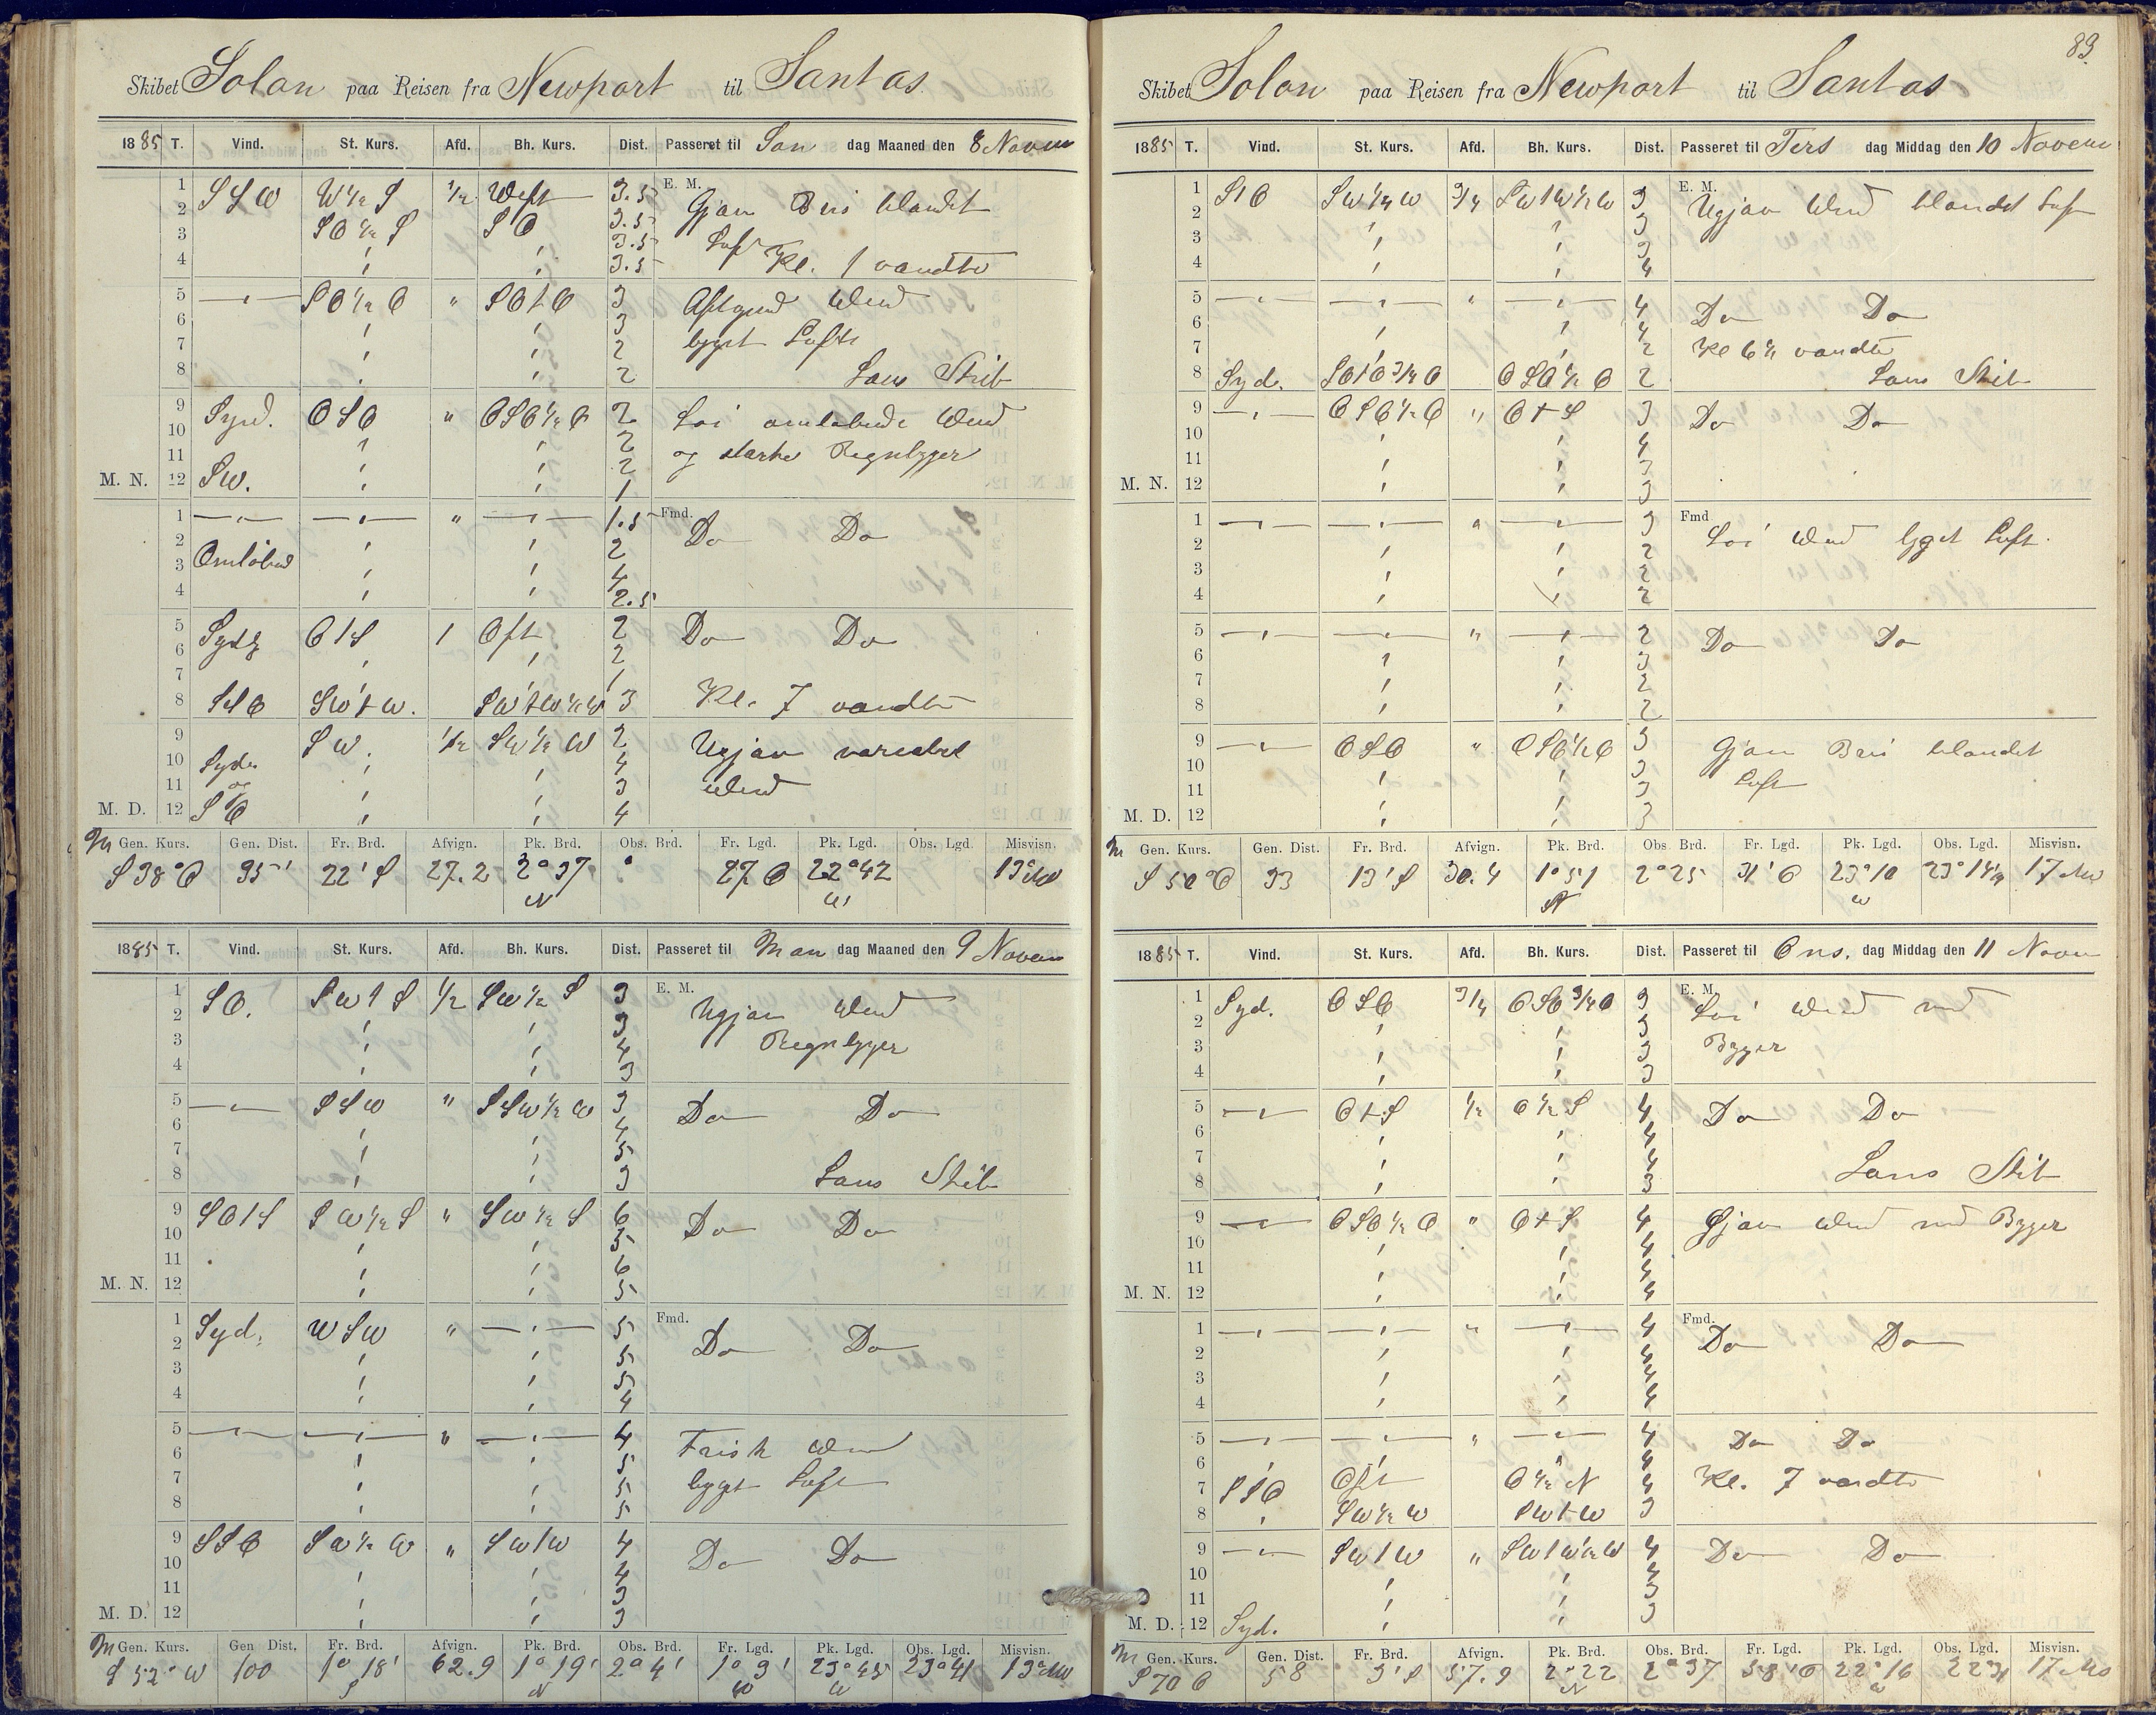 Skibet Solon paa Reisen fra Newport til Santos
1885 T. Vind. St. Kurs. Afd. Bh. Kurs. Dist. Passeret til Søn dag Maaned den 8 Novem
E. M.
1 SSW W½S ½ West 3.5 Gjæv Bris blandet
2 SO½S SO 3.5 Luft
3 3.5 Kl. 1 vendte
4 3.5
5 SO½O " SOtO 3 Aftagende Vind
6 3 byget Luft
7 2
8 2 Lans Skib
9 Synd. OSO " OSO½O 2 Løi omløbende Vind
10 2 og stærke Regnbyger
11 2
M. N. 12 SW. 1
Fmd.
1 " 1.5 Do Do
2 2
3 Omløbend 4
4 2.5
5 OtS 1 Ost 2 Do Do
6 2
7 1
8 SSO SWtW. SWtW½W 3 Kl. 7 vendte
9 SW. ½ SW½W 2 Ugjæv variabel
10 Syd 4 Vind
11 og 3
M. D. 12 SO 4
M Gen. Kurs. Gen. Dist. Fr. Brd. Afvign. Pk. Brd. Obs. Brd. Fr. Lgd. Pk. Lgd. Obs. Lgd Misvisn.
S38°O 35' 22'S 27.2 2°37 N 27.O 22°42 W 13°
1885 T. Vind. St. Kurs. Afd. Bh. Kurs. Dist. Passeret til Man dag Maaned den 9 Novem
E. M.
1 SO. SWtS ½ SW½S 3 Ugjæv Vind
2 3 Regnbyger
3 4
4 3
5 SSW " SSW½W 3 Do Do
6 4
7 5
8 3 Lans Skib
9 SOtS SW½S " SW½S 6 Do Do
10 5
11 6
M. N. 12 5
Fmd.
1 Syd. WSW " 5 Do Do
2 5
3 5
4 4
5 " 4 Frisk Vind
6 5 byget Luft
7 5
8 5
9 SSO SW½W " SWtW 4 Do Do
10 4
11 3
M. D. 12 3
M Gen. Kurs. Gen Dist. Fr. Brd. Afvign. Pk. Brd. Obs. Brd. Fr. Lgd. Pk. Lgd. Obs. Lgd. Misvisn.
S52°W 100 1°18' S 62.9 1°19' N 2°4' 1°3' W 23°45 W 23°41 13°
83.
Skibet Solon paa Reisen fra Newport til Santos
1885 T. Vind. St. Kurs. Afd. Bh. Kurs. Dist. Passeret til Tirs dag Middag den 10 Novem
E. M.
1 StO SW¼W ¾ SWtW½W 3 Ugjæv Vind blandet Luft
2 3
3 3
4 4
5 " 4 Do Do
6 4
7 2 Kl 6½ vendte
8 Syd. SOtO¾O OSO½O 2 Lans Skib
9 OSO½O " OtS 3 Do Do
10 4
11 3
M. N. 12 3
Fmd
1 " 3 Løi Vind byget Luft.
2 2
3 2
4 2
5 " 2 Do Do
6 3
7 2
8 2
9 OSO " OSO½O 3 Gjæv Bris blandet
10 3 Luft
11 3
M. D. 12 3
M Gen. Kurs. Gen. Dist. Fr. Brd. Afvign. Pk. Brd. Obs. Brd. Fr. Lgd. Pk. Lgd. Obs. Lgd. Misvisn.
S50°O 33 13'S 30.4 1°51 N 2°25 31'O 23°10 W 23°14 17
1885 T. Vind. St. Kurs. Afd. Bh. Kurs. Dist. Passeret til Ons. dag Middag den 11 Novem
E. M.
1 Syd. OSO ¾ OSO¾O 3 Løi Vind med
2 3 Byger
3 3
4 3
5 OtS ½ O½S 4 Do Do
6 4
7 4
8 3 Lans Skib
9 OSO½O " OtS 4 Gjæv Vind med Byger
10 4
11 4
M. N. 12 4
Fmd.
1 " 4 Do Do
2 4
3 4
4 4
5 " 4 Do Do
6 4
7 SSO Ost O½N 4 Kl. 7 vendte
8 SW½W SWtW 3
9 SWtW " SWtW½W 4 Do Do
10 4
11 3
M. D. 12 Syd. 3
M Gen. Kurs. Gen. Dist. Fr. Brd. Afvign. Pk. Brd. Obs. Brd. Fr. Lgd. Pk. Lgd. Obs. Lgd. Misvisn.
S70O 58 3'S 57.9 2°22 N 2°37 58'O 22°16 W 17